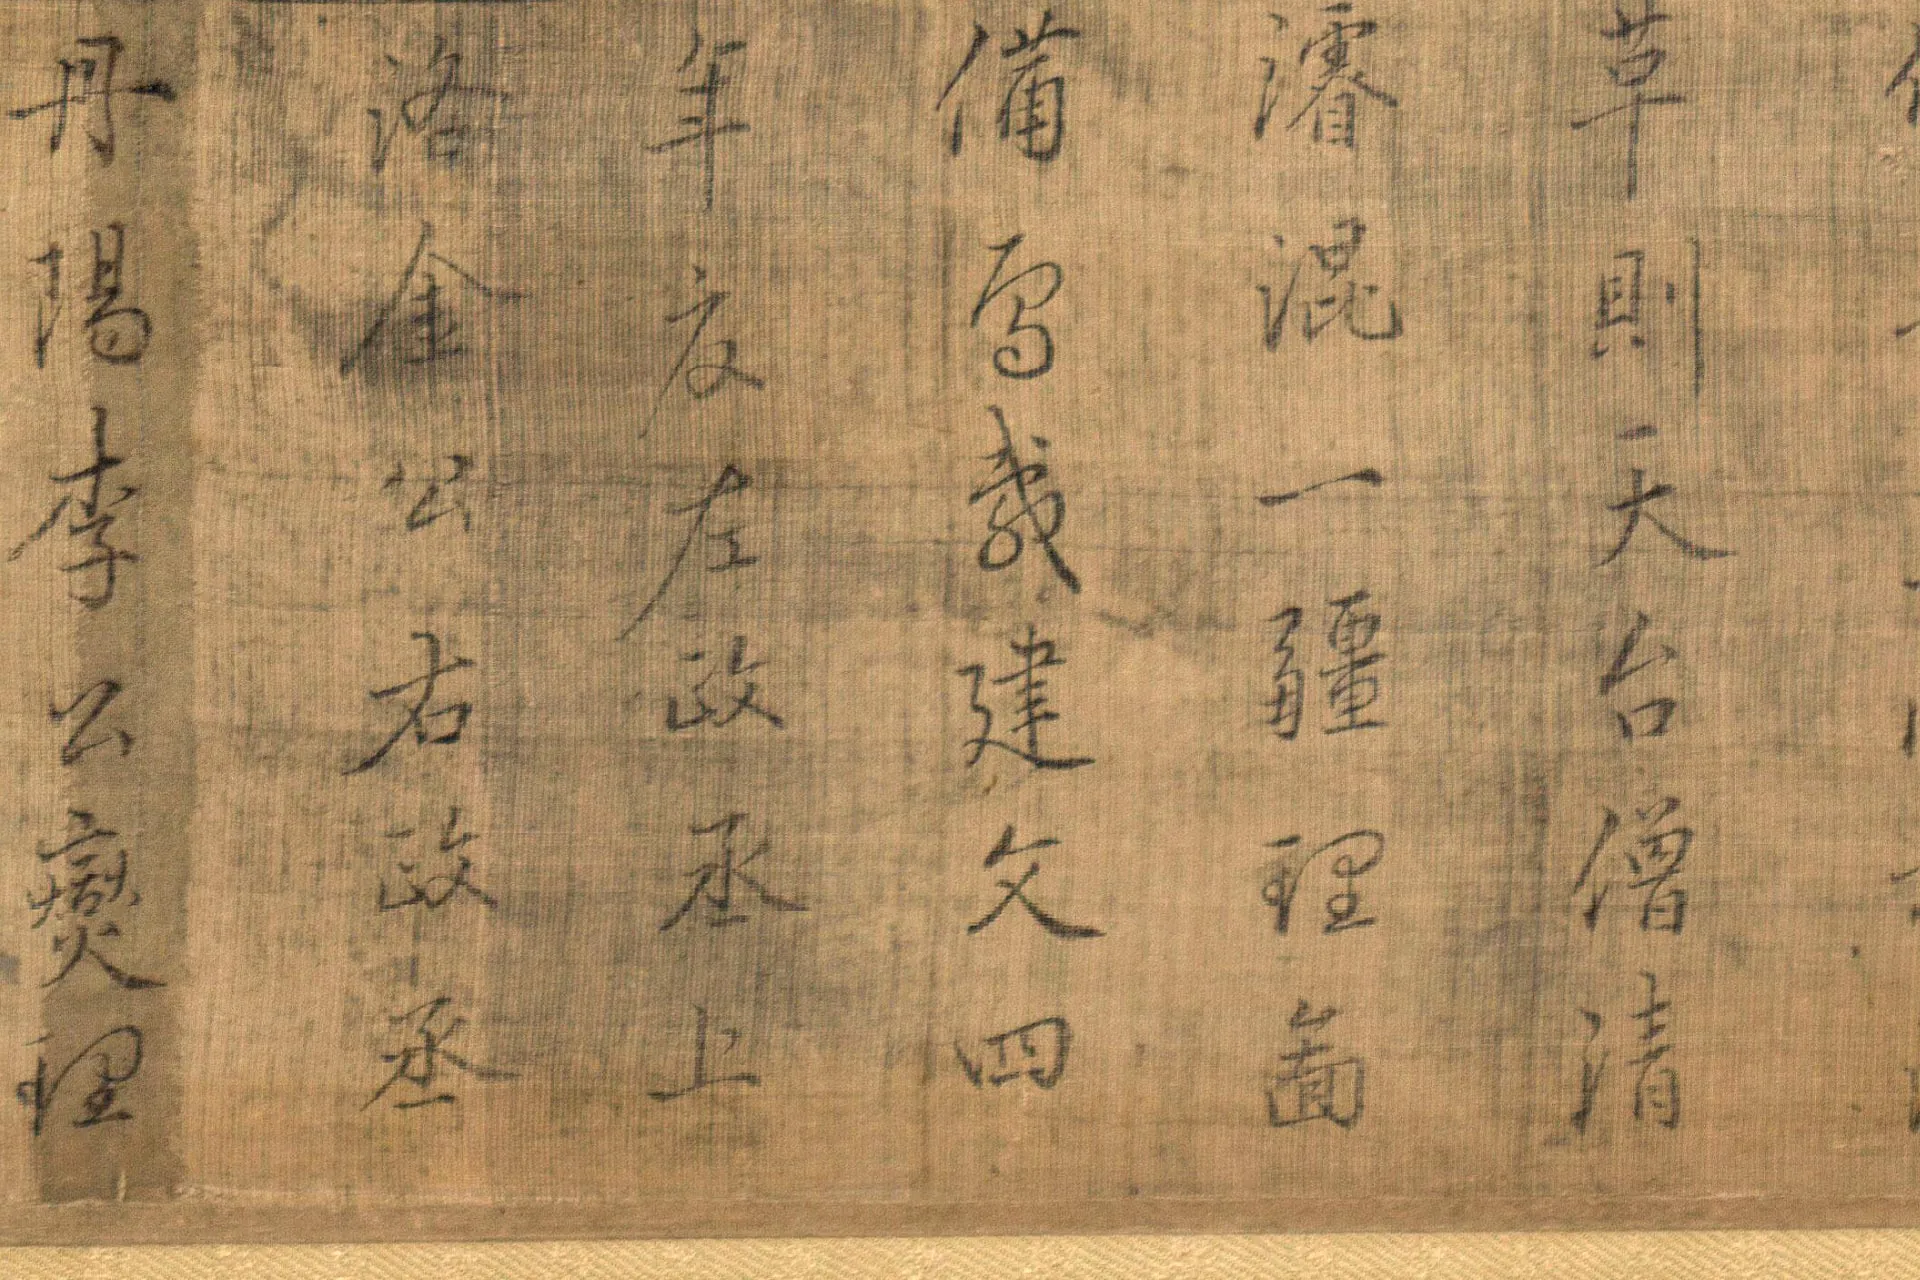 革則天台僧清
濬混一疆理圖
備焉載建文四
年夏左政丞上
洛金公右政丞
丹陽李公燮理